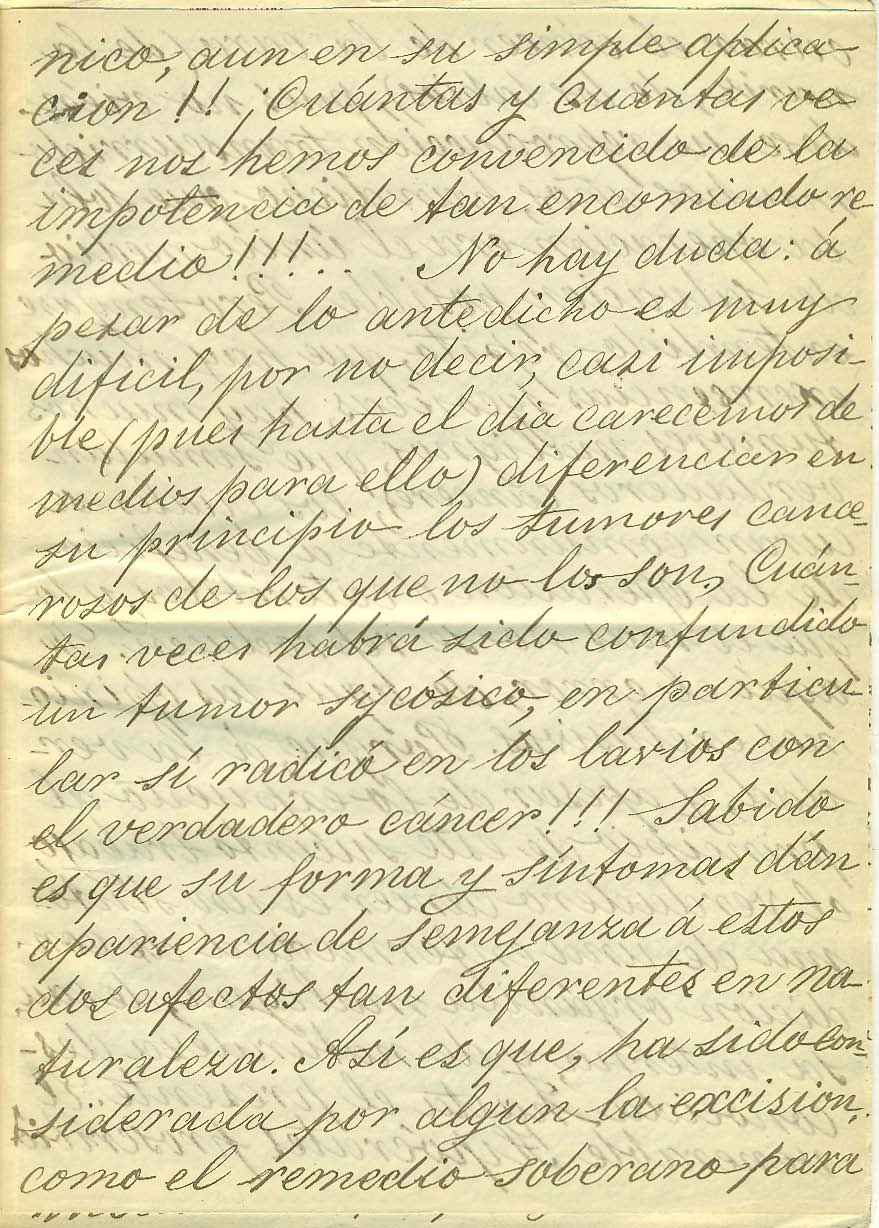 nico, aun en su simple aplica-
cion!! ¡Cuántas y cuántas ve
ces nos hemos convencido de la
impotencia de tan encomiado re-
medio!!!... No hay duda: á
pesar de lo antedicho es muy
dificil, por no decir, casi imposi-
ble (pues hasta el dia carecemos de
medios para ello) diferenciar en
su principio los tumores cance-
rosos de los que no los son, Cuán-
tas veces habrá sido confundido
un tumor sycósico, en particu
lar sí radicó en los lavios con
el verdadero cáncer!!! Sabido
es que su forma y síntomas dán
apariencia de semejanza á estos
dos afectos tan diferentes en na-
turaleza. Así es que, ha sido con-
siderada por algun la excision,
como el remedio soberano para